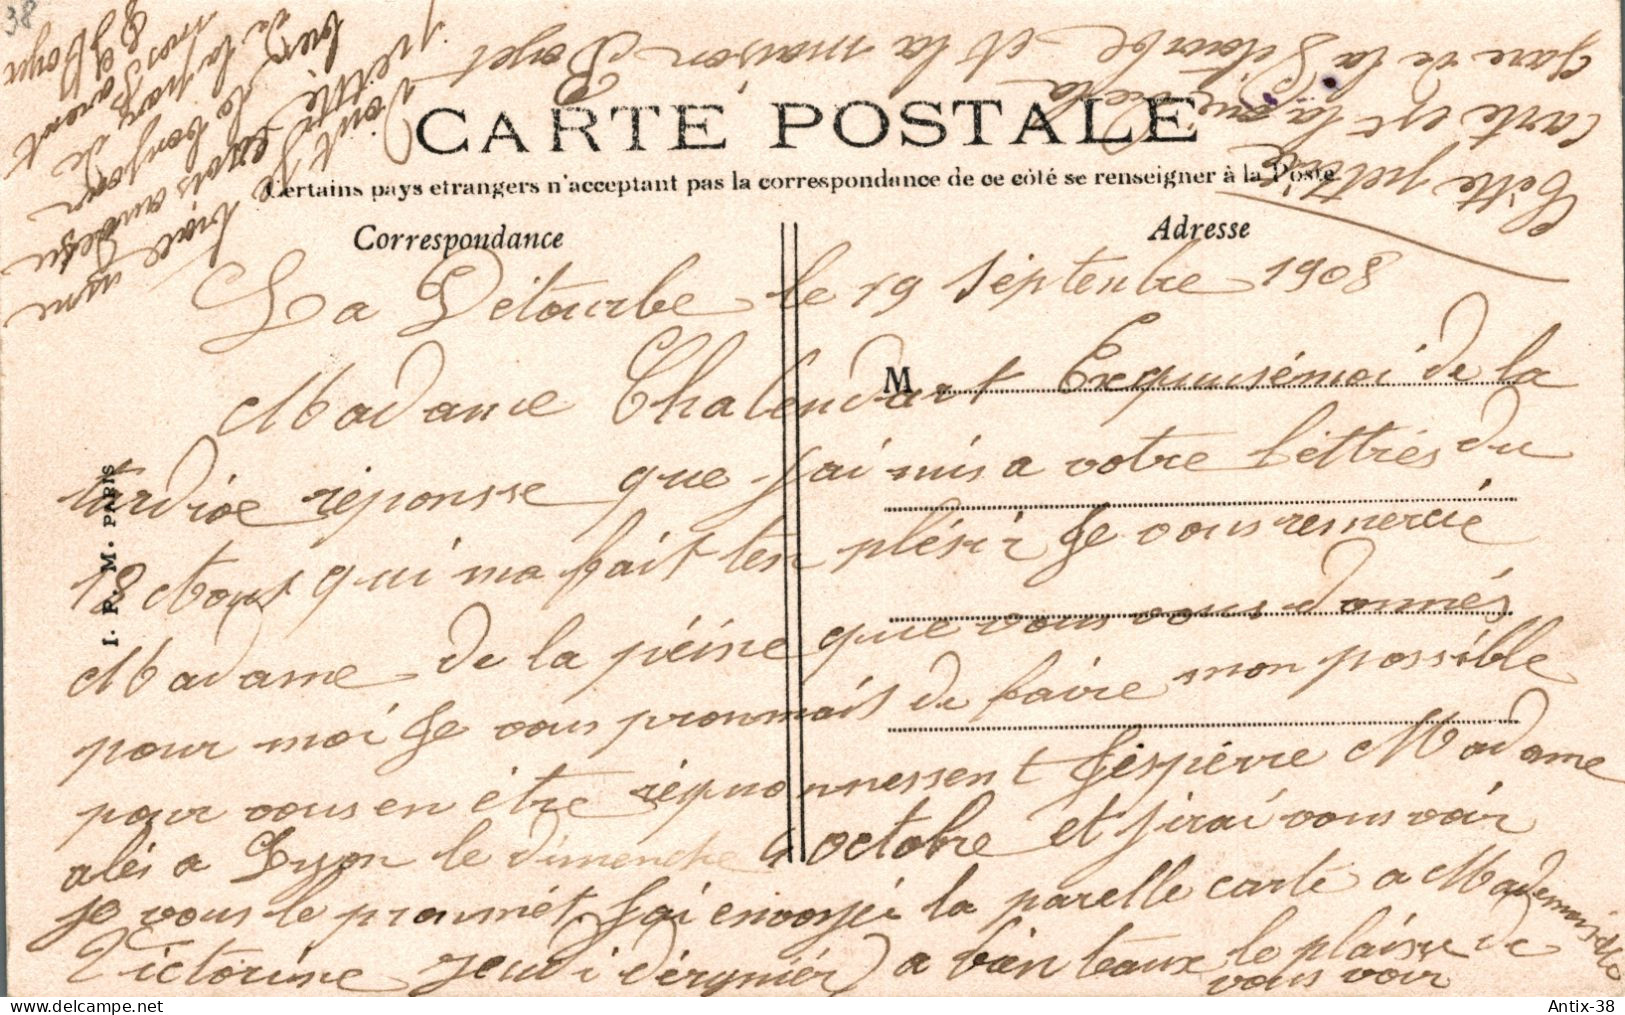 38
CARTE POSTALE
Certains pays etrangers n'acceptent pas la correspondance de ce côté se renseigner à la Poste
Correspondance
Adresse
M
I. P. M. PARIS
La Détourbe le 19 Septenbre 1908
Madame Chalendart Exqusémoi de la
tardive réponsse que j'ai mis a votre lettres du
18 Aout qui ma fait ten plésir Je vous remercie
Madame de la péine que vous vous donnés
pour moi Je vous pronmais de faire mon possible
pour vous en être réquonnessent J'éspérre Madame
alér a Lyon le dimenche 4 octobre et j'irai vous voir
je vous le pronmét. J'ai envoyéi la parelle carte a Mademoiselle
Victorine jeudi dérgniér a bien taux le plaisir de
vous voir
Cette petite
carte est la vue de la
gare de la Détourbe et la maison Bojet
joint
petite
bien le bonjour
de la par de
mes parent